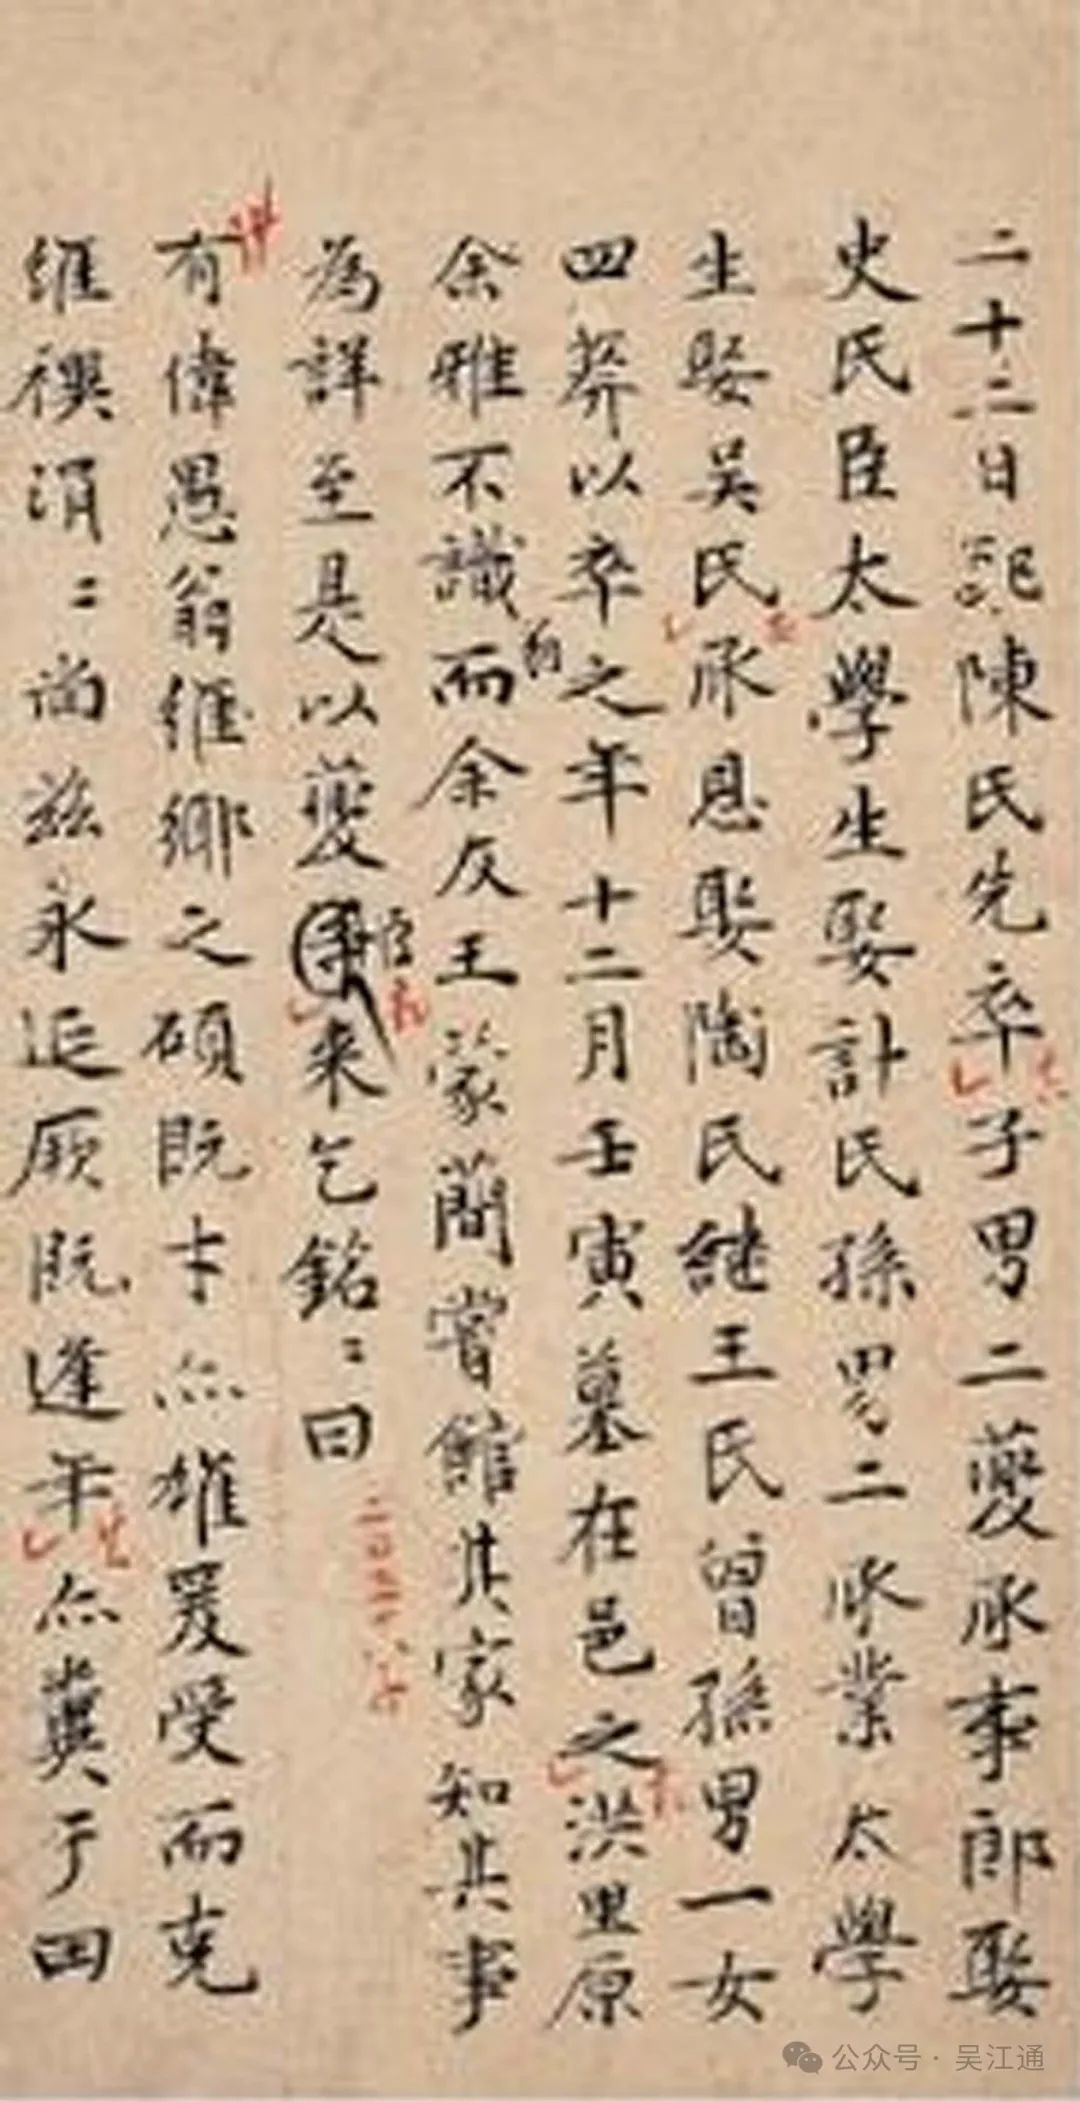 二十二日配陳氏先卒子男二夔承事郎娶
史氏臣太學生娶計氏孫男二承業太學
生娶吳氏承恩娶陶氏継王氏曾孫男一女
四葬以卒之年十二月壬寅墓在邑之洪里原
余雅不識而余友王蒙蕑嘗館其家知其事
為詳至是以夔臣來乞銘〻曰
有偉愚翁維鄉之碩既士亦雄爰受而克
維禩涓〻尚茲永延厥既逢年亦冀于田
公众号·吴江通